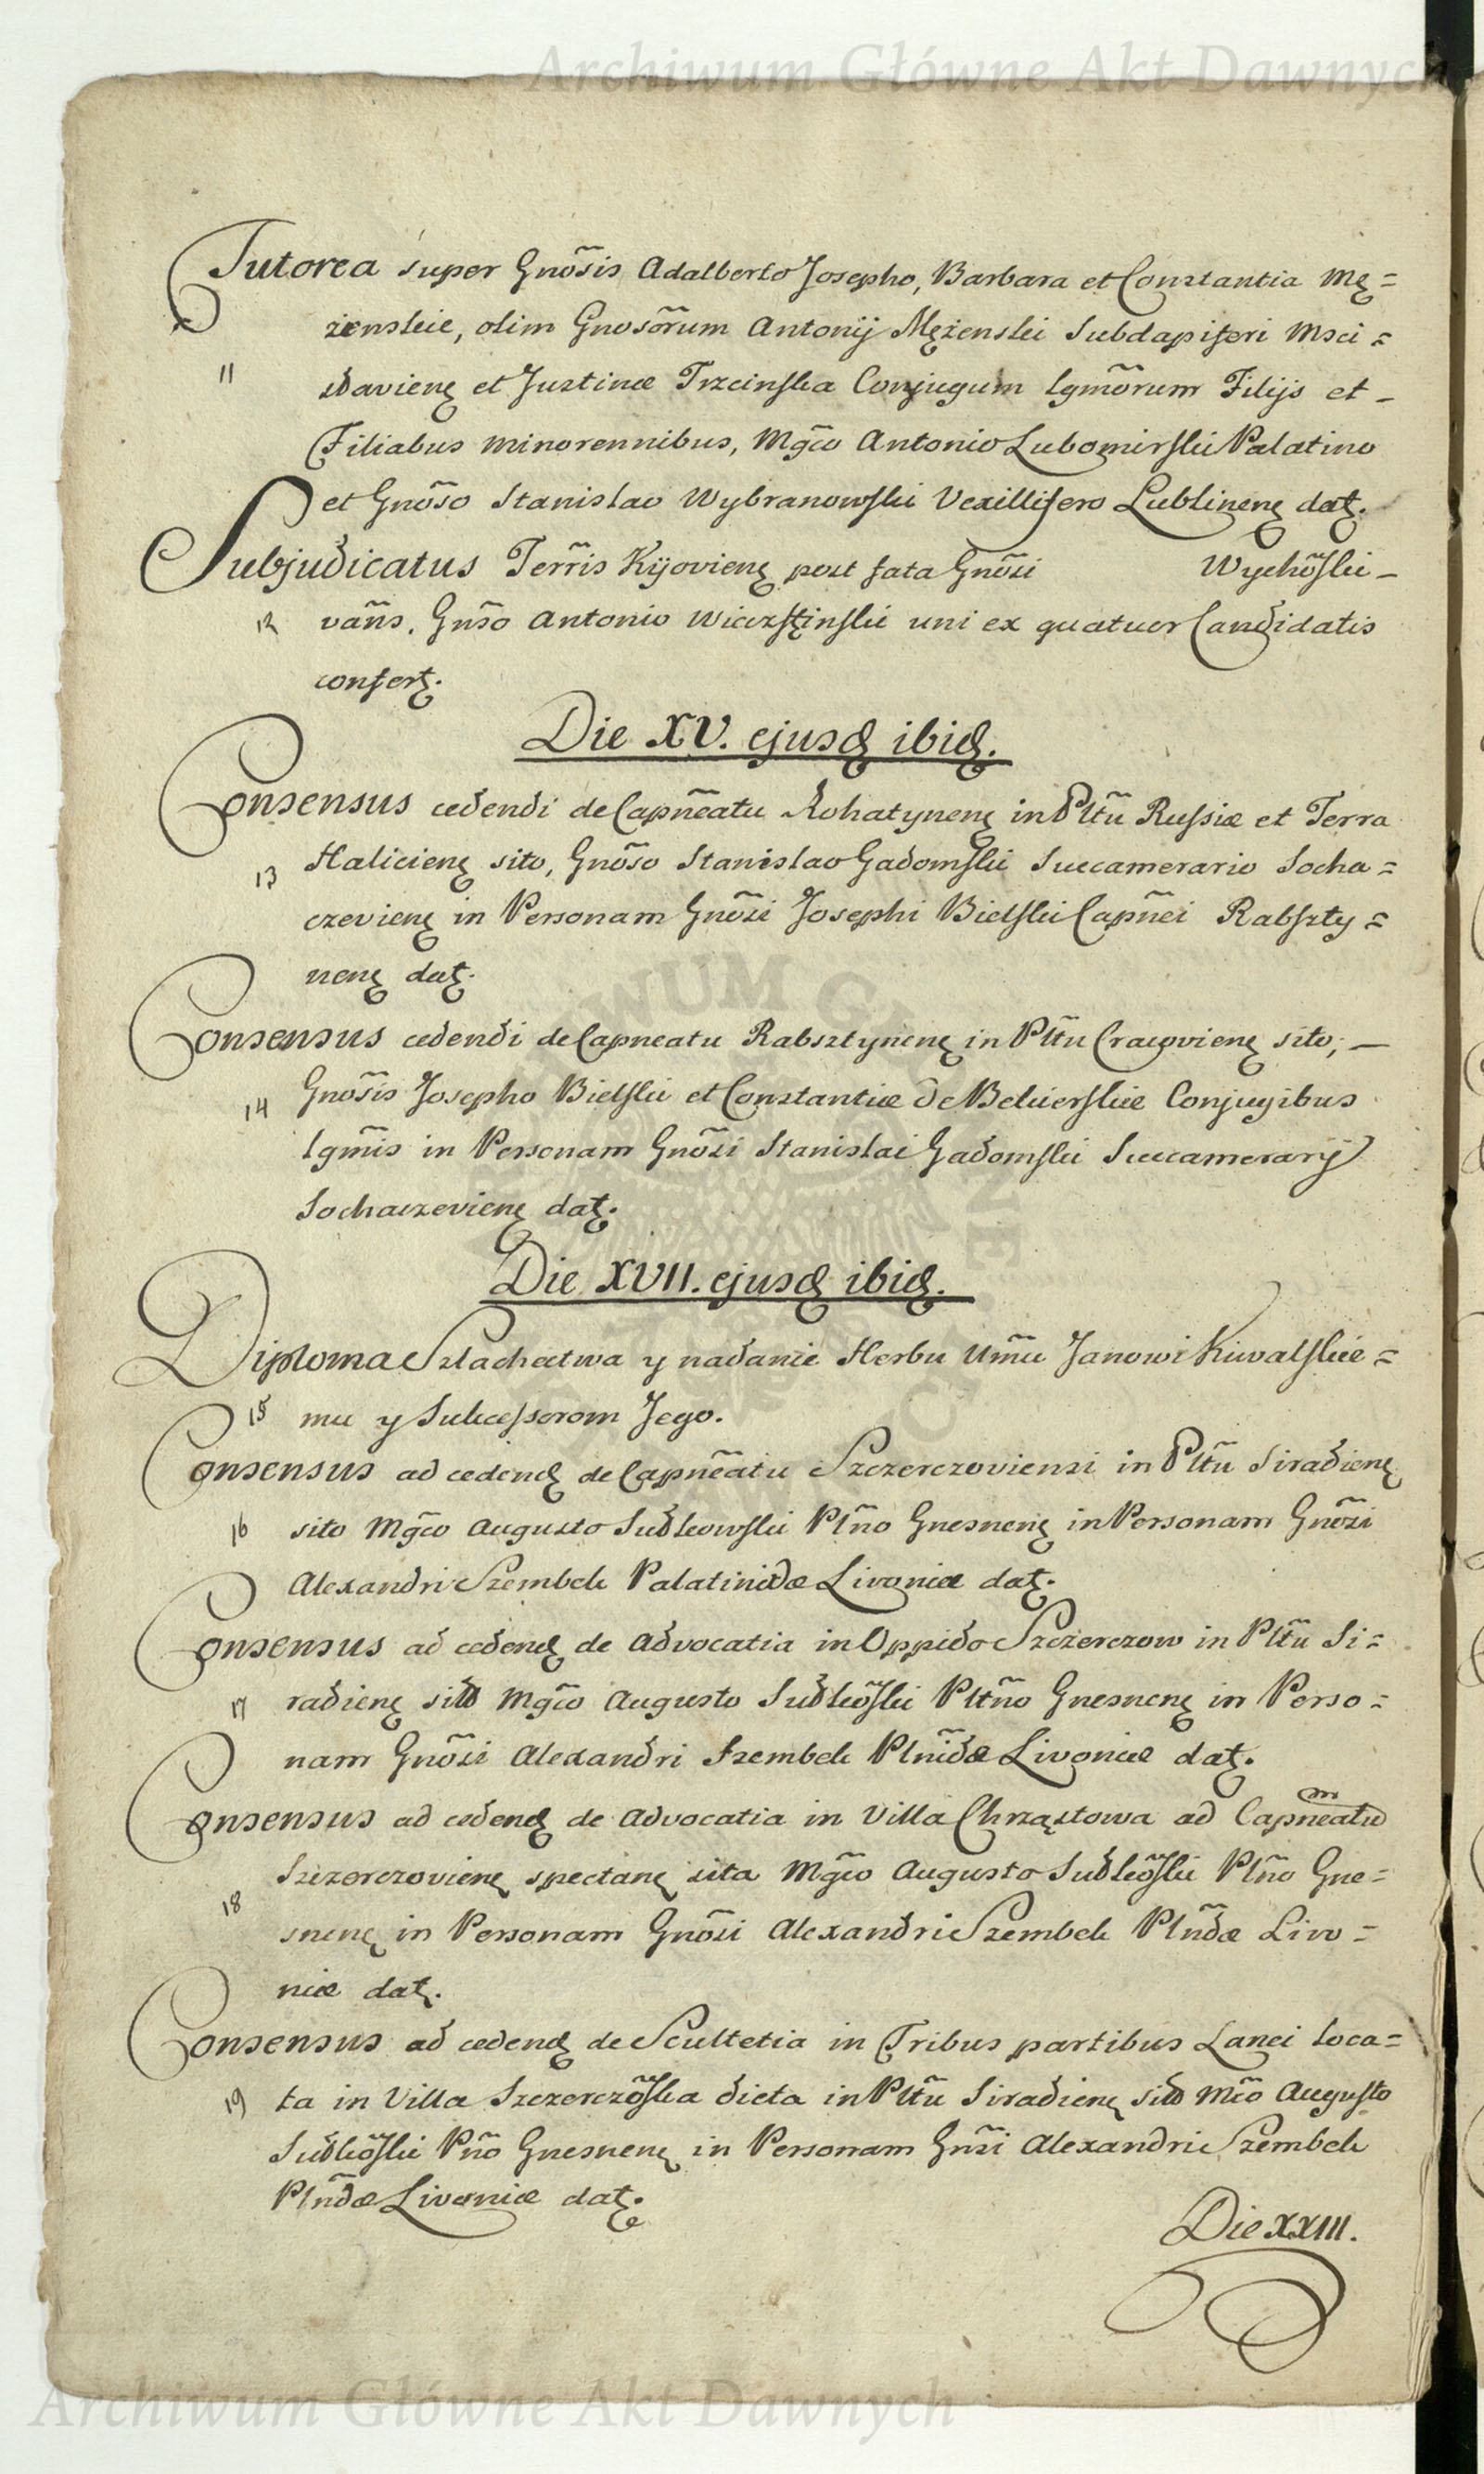 Archiwum Główne Akt Dawnych
Tutorea super Gnõsis Adalberto Josepho, Barbara et Constantia Mę=
żenskie, olim Gnosõrum Antonij Mężenski Subdapiferi Msci=
11 slavienę et Justinæ Trzcinska Conjugum lgmõrum Filijs et -
Filiabus minorennibus, Mgĩco Antonio Lubomirski Palatino
et Gnõso Stanislao Wybranowski Vexillifero Lublinenę datę.
Subjudicatus Terrĩs Kijovienę post fata Gnõsi Wychõski -
12 vañs. Gnĩso Antonio uni ex quatuor Candidatis
confertę.
Die XV. ejusdę ibidę.
Consensus cedendi de Capñeatu Rohatynenę in Pltũ Russiæ et Terra
13 Halicienę sito, Gnõso Stanislao Gadomski Succamerario Socha=
czevienę in Personam Gnõsi Josephi Bielski Capñei Rabszty=
nenę datę.
Consensus cedendi de Capneatu Rabsztynenę in Pltũ Cracovienę sito, —
14 Gnõsis Josepho Bielski et Constantiæ de Bekierskie Conjugibus
lgmĩs in Personam Gnõsi Stanislai Gadomski Succamerarij
Sochaczevienę datę.
Die XVII. ejusdę ibidę.
Diploma Szlachectwa y nadanie Herbu Umũ Janowi Kuwalskie=
15 mu y Sukcessorom Jego.
Consensus ad cedendę de Capñeatu Szczerczoviensi in Pltũ Siradienę
16 sito Mgĩco Augusto Sudkowski Plñno Gnesnenę in Personam Gnõsi
Alexandri Szembek Palatinidæ Livoniæ datę.
Consensus ad cedendę de Advocatia in Oppido Szczerczow in Pltũ Si=
17 radienę sito Mgĩco Augusto Sudkõski Pltñno Gnesnenę in Perso=
nam Gnõsi Alexandri Szembek Plnĩdæ Livoniæ datę.
Consensus ad cedendę de Advocatia in Villa Chrząstowa ad Capñeatum
Szczerczovienę spectanę sita Mgĩco Augusto Sudkõski Pltño Gne=
18 snenę in Personam Gnõsi Alexandri Szembek Plnĩdæ Livo=
niæ datę.
Consensus ad cedendę de Scultetia in Tribus partibus Lanei loca=
19 ta in Villa Szczerczõska dicta in Pltũ Siradienę sito Mcĩo Augusto
Sudkõski Pñno Gnesnenę in Personam Gnĩsi Alexandri Szembek
Plnĩdæ Livoniæ datę.
Die XXIII.
Archiwum Główne Akt Dawnych